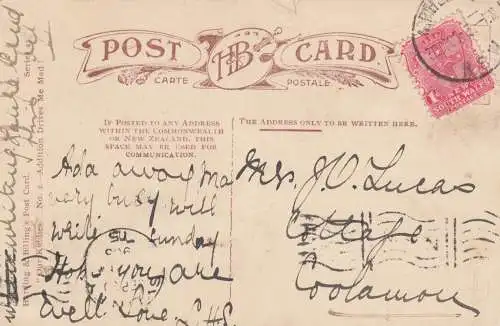 POST CARD.
H&B
CARTE POSTALE
IF POSTED TO ANY ADDRESS
WITHIN THE COMMONWEALTH
OR NEW ZEALAND, THIS
SPACE MAY BE USED FOR
COMMUNICATION.
THE ADDRESS ONLY TO BE WRITTEN HERE.
Harding & Billing's Post Card.
"Our Kiddies" No. 2 - Addition Drives Me Mad!
Series
Ada away Ma
very busy will
write Sunday
Hope you are
well. Love.
Mrs. J. O. Lucas
Cottage
Coolamon
SOUTH WALES